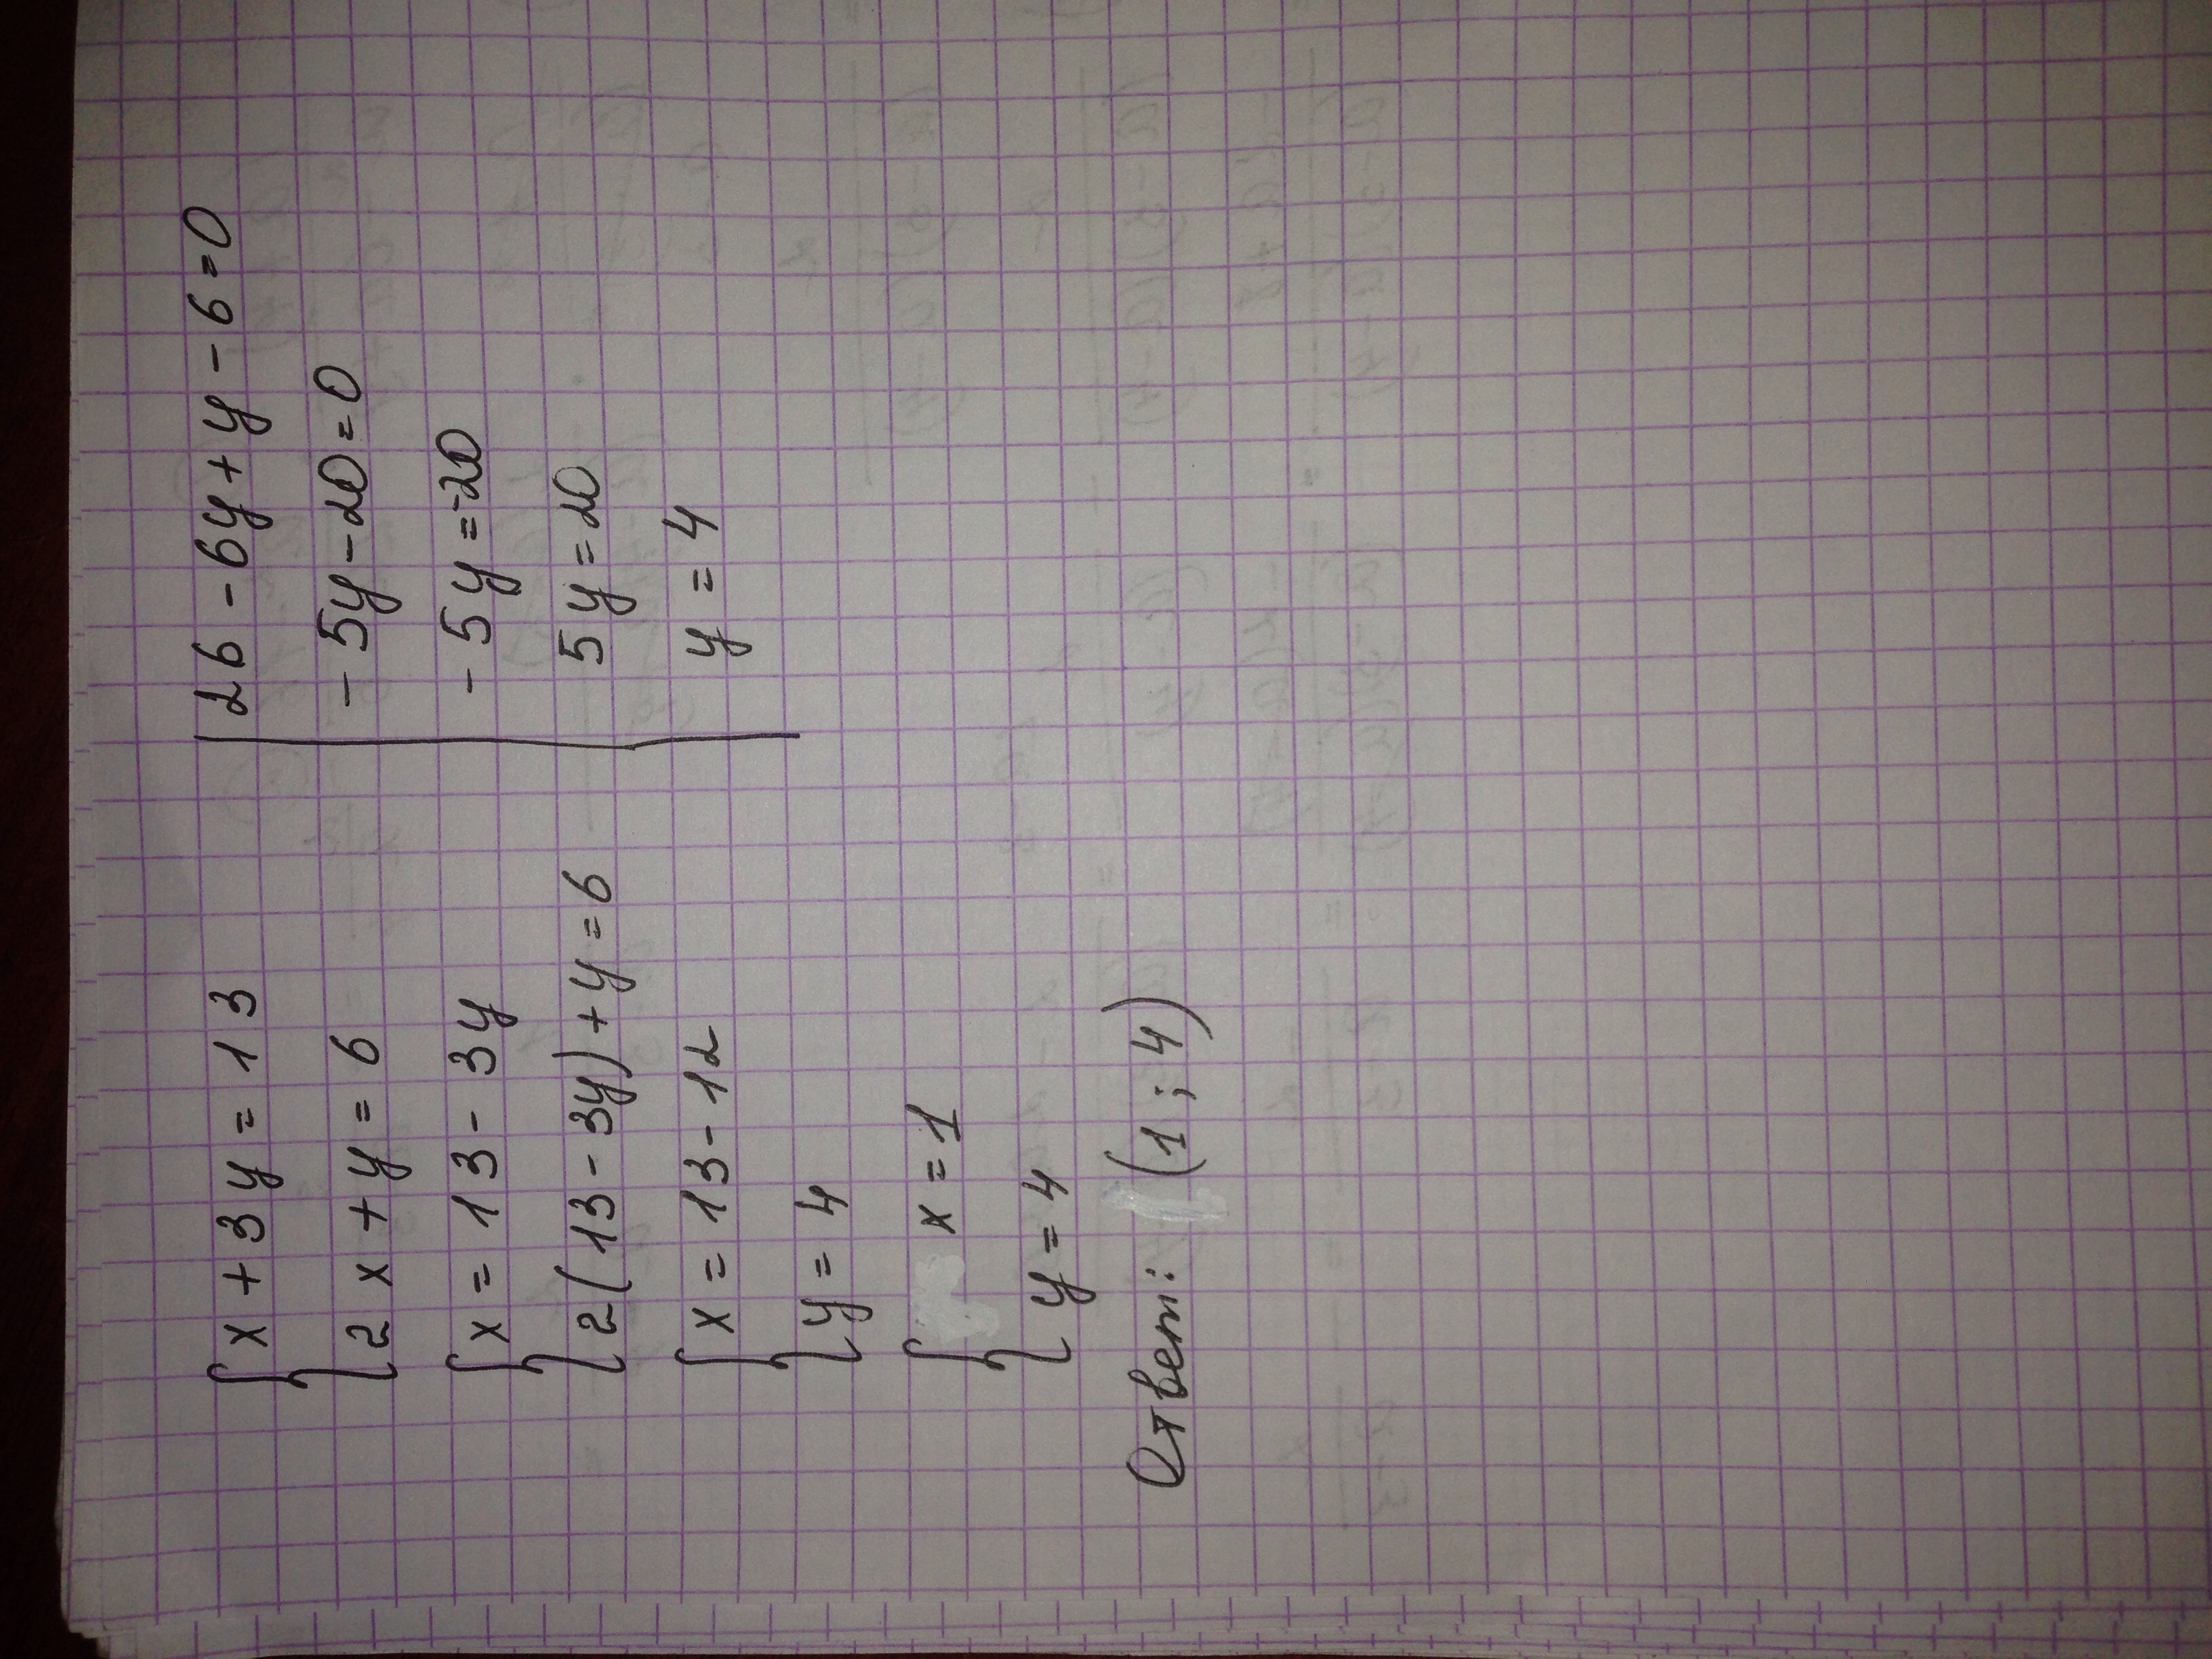 x + 3y = 13
2x + y = 6
x = 13 - 3y
2(13 - 3y) + y = 6
x = 13 - 12
y = 4
x = 1
y = 4
Ответ: (1; 4)
26 - 6y + y - 6 = 0
- 5y - 20 = 0
- 5y = -20
5y = 20
y = 4